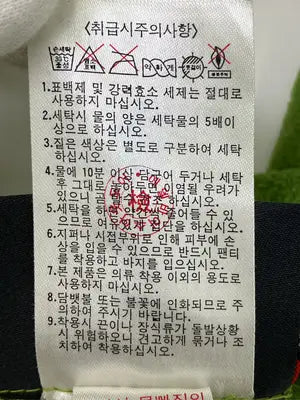 <취급시주의사항>
손세탁
30℃
중성
염소
표백
약하게
1.표백제 및 강력효소 세제는 절대로
사용하지 마십시오.
2.세탁시 물의 양은 세탁물의 5배이
상으로 하십시오.
3.짙은 색상은 별도로 구분하여 세탁
하십시오.
4.물에 10분 이상 담그어 두거나 세탁
후 그대로 놓아두면 이염될 우려가
있으니 곧 조 하십시오.
5.세탁을 하면 약간씩 줄어들 수 있
으므로 여유있게 입단을 하십시오.
6.지퍼나 시접부위로 인해 피부에 손
상을 입을 수 있으므로 반드시 팬티
를 착용하고 바지를 입으십시오.
7.본 제품은 의류 착용 이외의 용도로
사용하지 마십시오.
8.담뱃불 또는 불꽃에 인화되므로 주
의하여 주시기 바랍니다.
9.착용시 끈이나 장식류가 돌발상황
시 위험하오니 견고하게 묶거나 조
치하여 착용하십시오.
檢